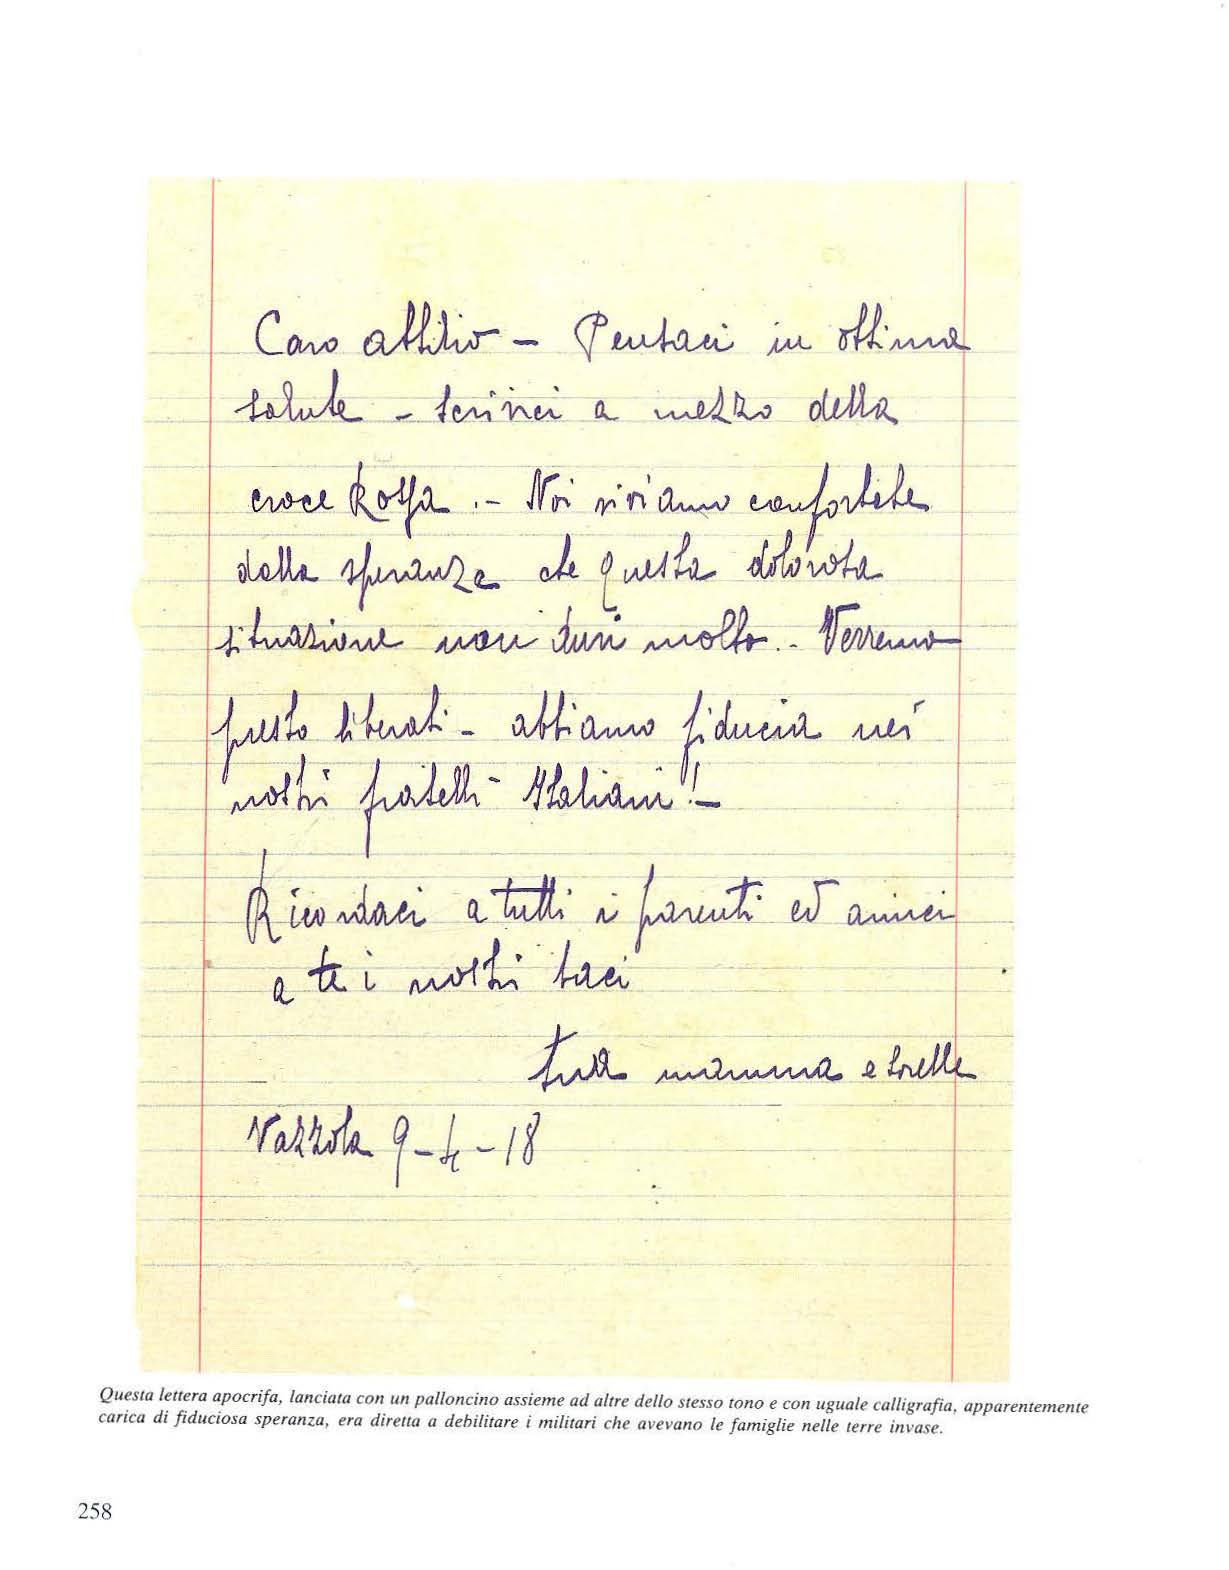 Caro Attilio – Pensaci in ottima
salute – scrivici a mezzo della
croce Rossa .– Noi viviamo confortate
dalla speranza che questa dolorosa
situazione non duri molto .– Verremo
presto liberati – abbiamo fiducia nei
nostri fratelli Italiani! –
Ricordaci a tutti i parenti ed amici
a te i nostri baci
tua mamma e sorelle
Vazzola 9–4–18
Questa lettera apocrifa, lanciata con un palloncino assieme ad altre dello stesso tono e con uguale calligrafia, apparentemente
carica di fiduciosa speranza, era diretta a debilitare i militari che avevano le famiglie nelle terre invase.
258